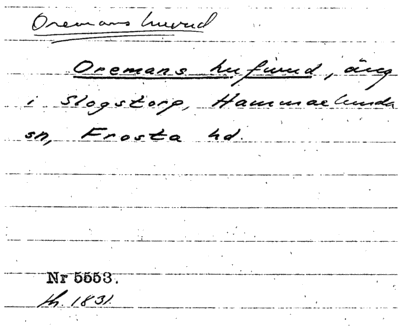 Oremans huvud
Oremans hufwud, äng
i Slogstorp, Hammarlunda
sn, Frosta hd.
Nr 5553.
th. 1831